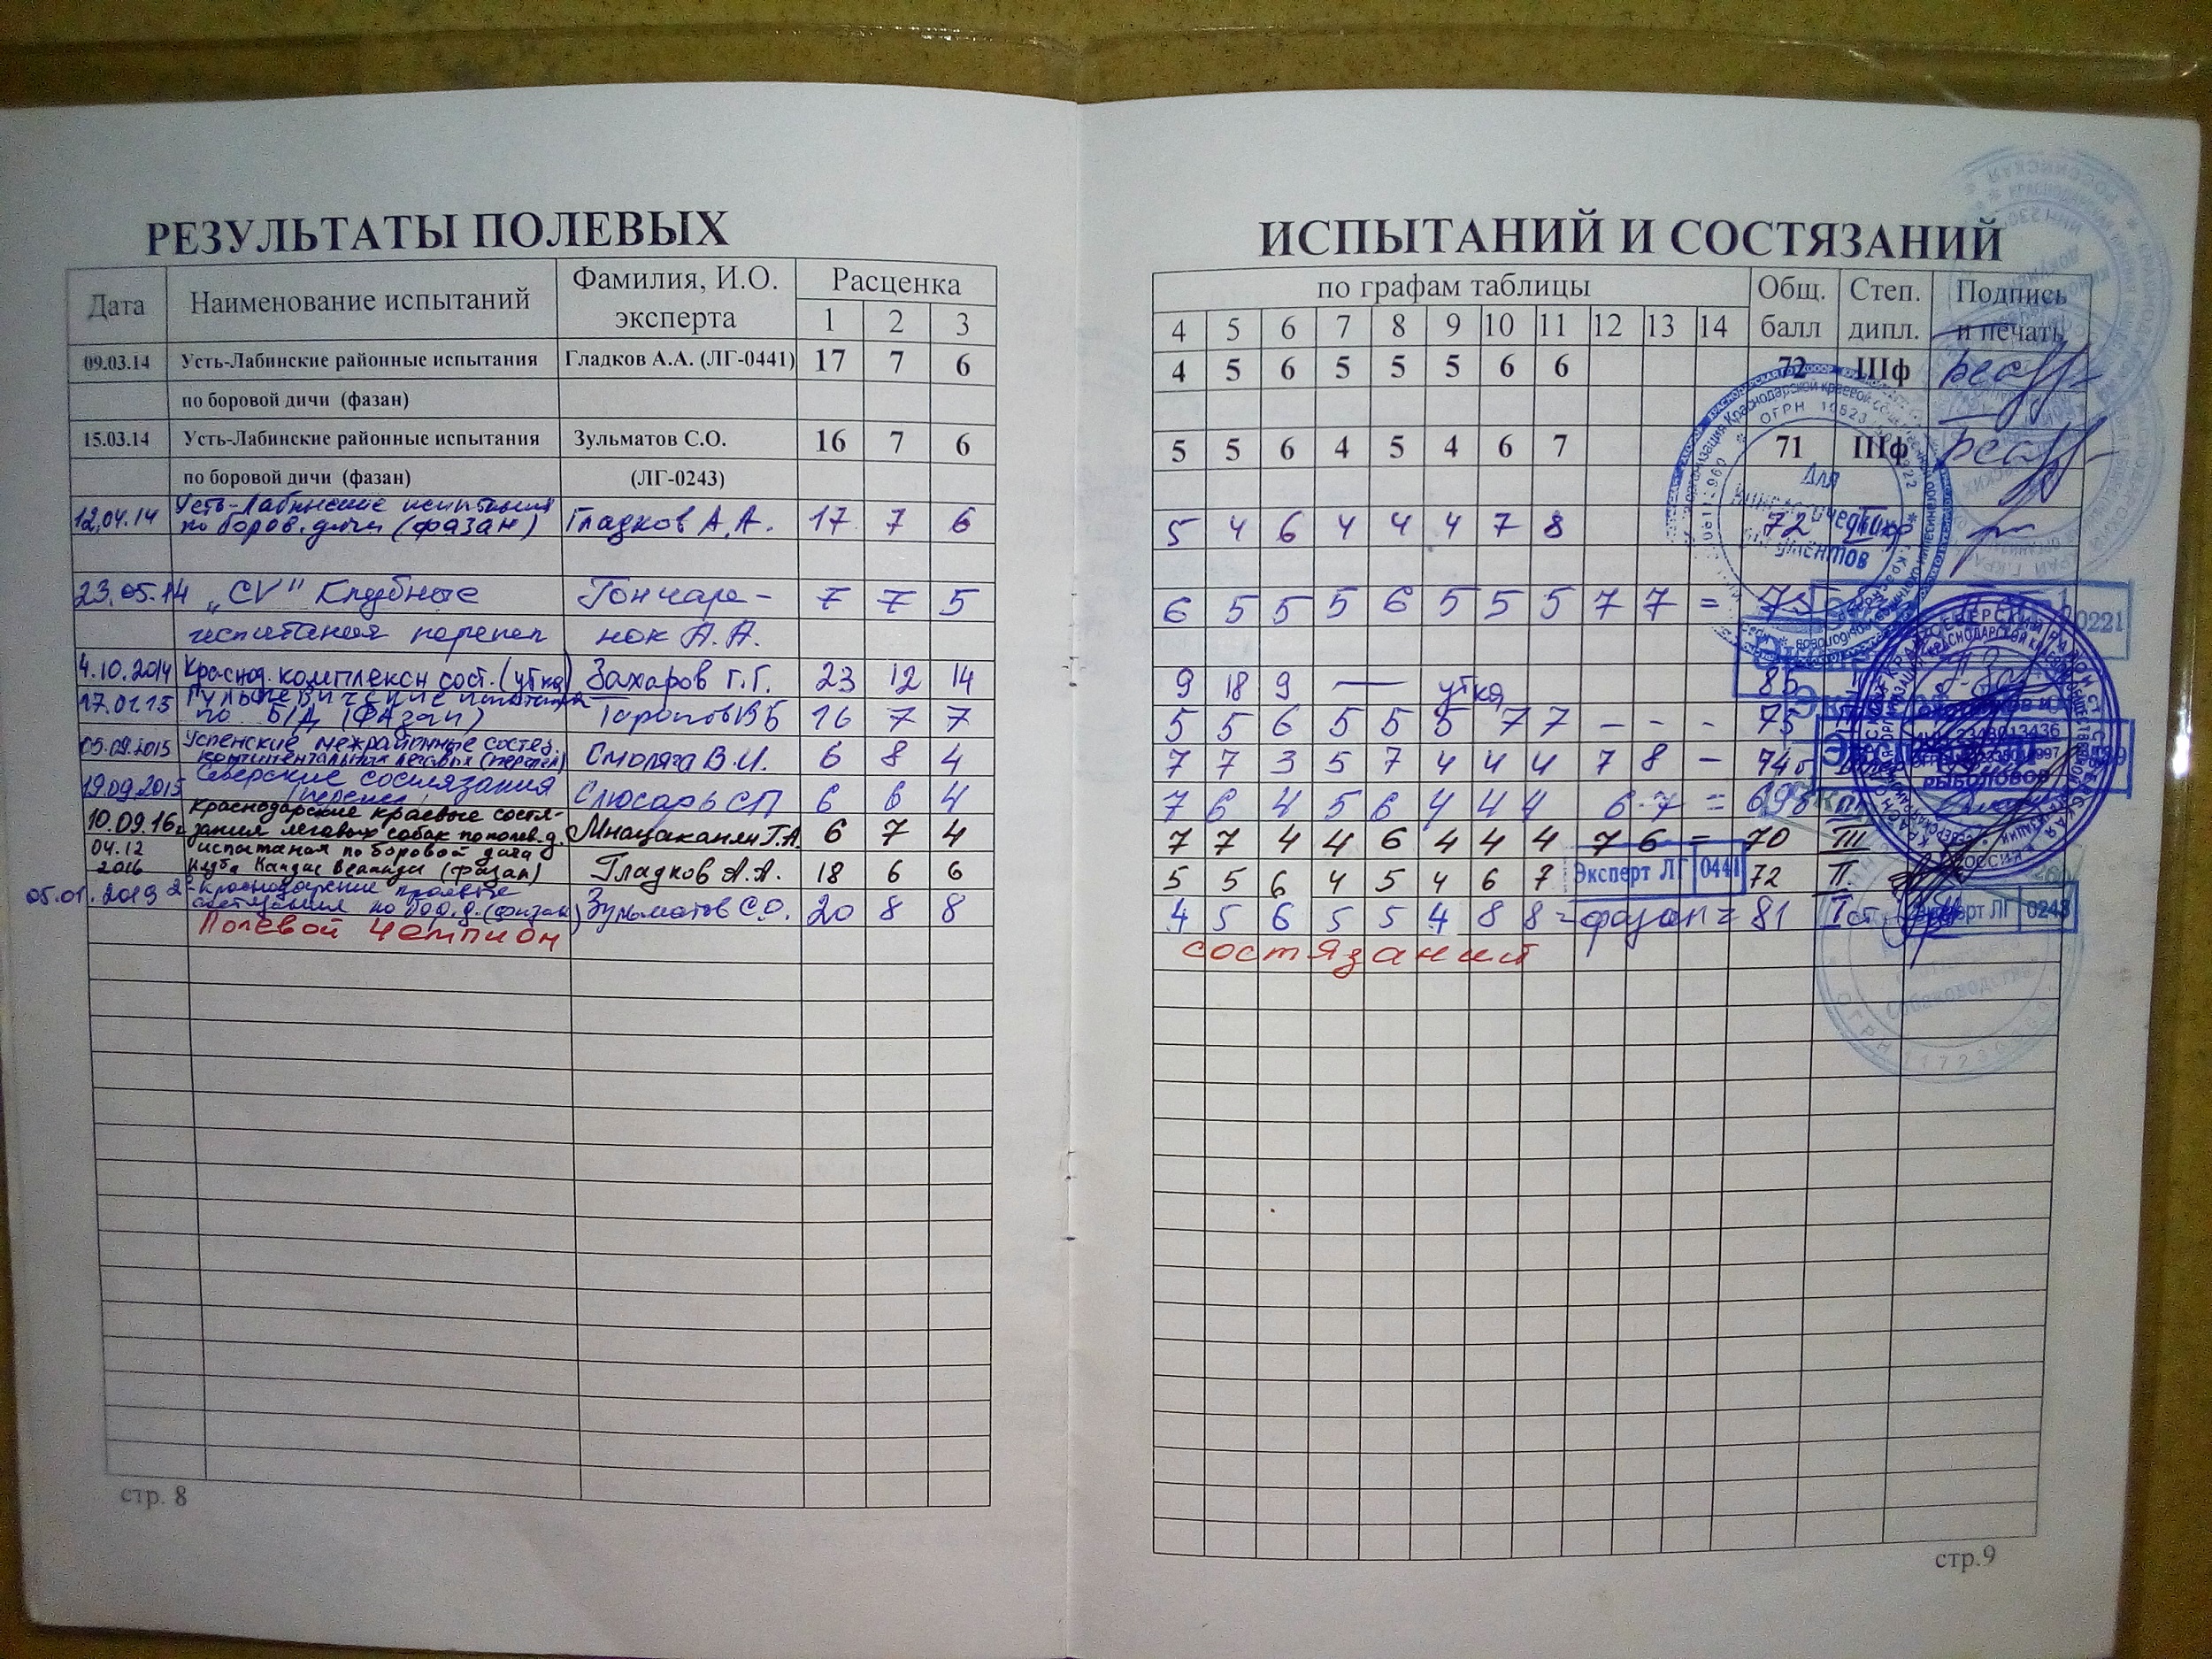 РЕЗУЛЬТАТЫ ПОЛЕВЫХ
Дата Наименование испытаний Фамилия, И.О. эксперта Расценка
1 2 3
09.03.14 Усть-Лабинские районные испытания Гладков А.А. (ЛГ-0441) 17 7 6
по боровой дичи (фазан)
15.03.14 Усть-Лабинские районные испытания Зульматов С.О. 16 7 6
по боровой дичи (фазан) (ЛГ-0243)
12.04.14 Усть-Лабинские испытания
по боров. дичи (фазан) Гладков А.А. 17 7 6
23.05.14 "CV" Клубные Гончаре- 7 7 5
испытания перепел нок А.А.
4.10.2014 Краснод. комплексн сост. (утка) Захаров Г.Г. 23 12 14
17.01.15
по Б/Д (фазан) 16 7 7
05.09.2015 Успенские межрайонные состяз.
континентальных легавых (перепел) Смоляга В.И. 6 8 4
19.09.2015 Северские состязания
(перепел) Слюсарь СП 6 6 4
10.09.16г Краснодарские краевые состя-
зания легавых собак по полев.д. Мнацаканян Г.А. 6 7 4
04.12 испытания по боровой дичи
2016 клуба (фазан) Гладков А.А. 18 6 6
05.01.2019 2е Краснодарские краевые
состязания по бор.д. (фазан) Зульматов С.О. 20 8 8
Полевой чемпион
стр. 8
ИСПЫТАНИЙ И СОСТЯЗАНИЙ
по графам таблицы Общ. балл Степ. дипл. Подпись и печать
4 5 6 7 8 9 10 11 12 13 14
4 5 6 5 5 5 6 6 72 IIIф
5 5 6 4 5 4 6 7 71 IIIф
5 4 6 4 4 4 7 8 72
6 5 5 5 6 5 5 5 7 7 = 75
9 18 9 — утка 85
5 5 6 5 5 5 7 7 - - - 75
7 7 3 5 7 4 4 4 7 8 - 74б
7 6 4 5 6 4 4 4 6 7 = 69б
7 7 4 4 6 4 4 4 7 6 = 70 III
5 5 6 4 5 4 6 7 Эксперт ЛГ 0441 72 II.
4 5 6 5 5 4 8 8 = фазан = 81 I ст Эксперт ЛГ 0243
состязаний
Для
документов
РЫБОЛОВОВ
0221
Собаководства
стр.9